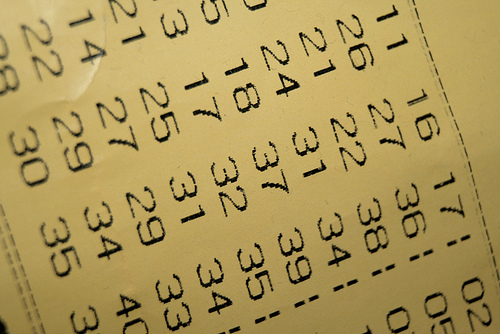 11 16 17 - 02
26 27 36 - 05
21 22 38 - 0
24 31 34 -
18 37 39 -
5 17 32 35 -
3 25 31 34 -
21 27 29 33
14 29 34 40
22 30 35 3